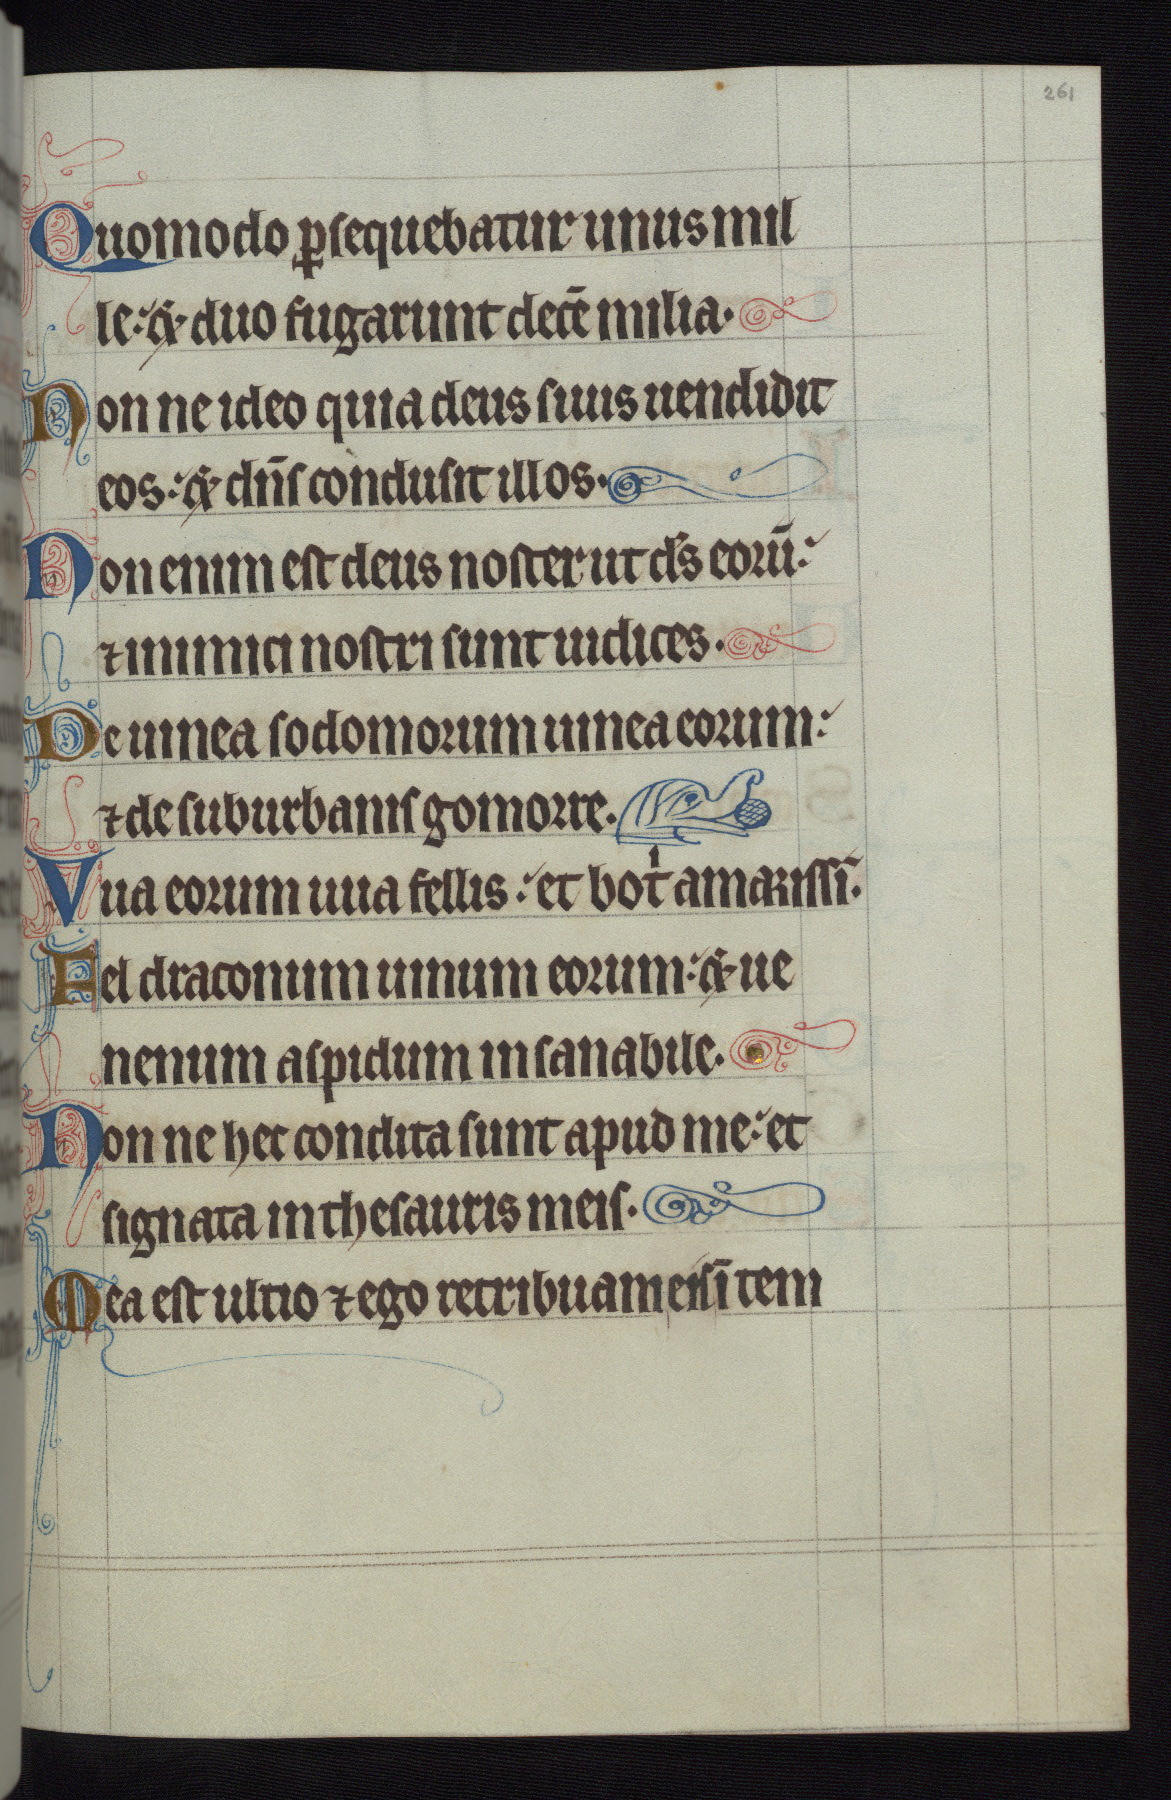 261
Quomodo ꝑsequebatur unus mil
le: & duo fugarunt decē milia.
Non ne ideo quia deus suus uendidit
eos: & dn̄s conclusit illos.
Non enim est deus noster ut ds̄ eorū:
⁊ inimici nostri sunt iudices.
De uinea sodomorum uinea eorum:
⁊ de suburbanis gomorre.
Vua eorum uua fellis: et botͥ amarissī.
Fel draconum uinum eorum: & ue
nenum aspidum insanabile.
Non ne hec condita sunt apud me: et
signata in thesauris meis.
Mea est ultio ⁊ ego retribuam eis ī tem